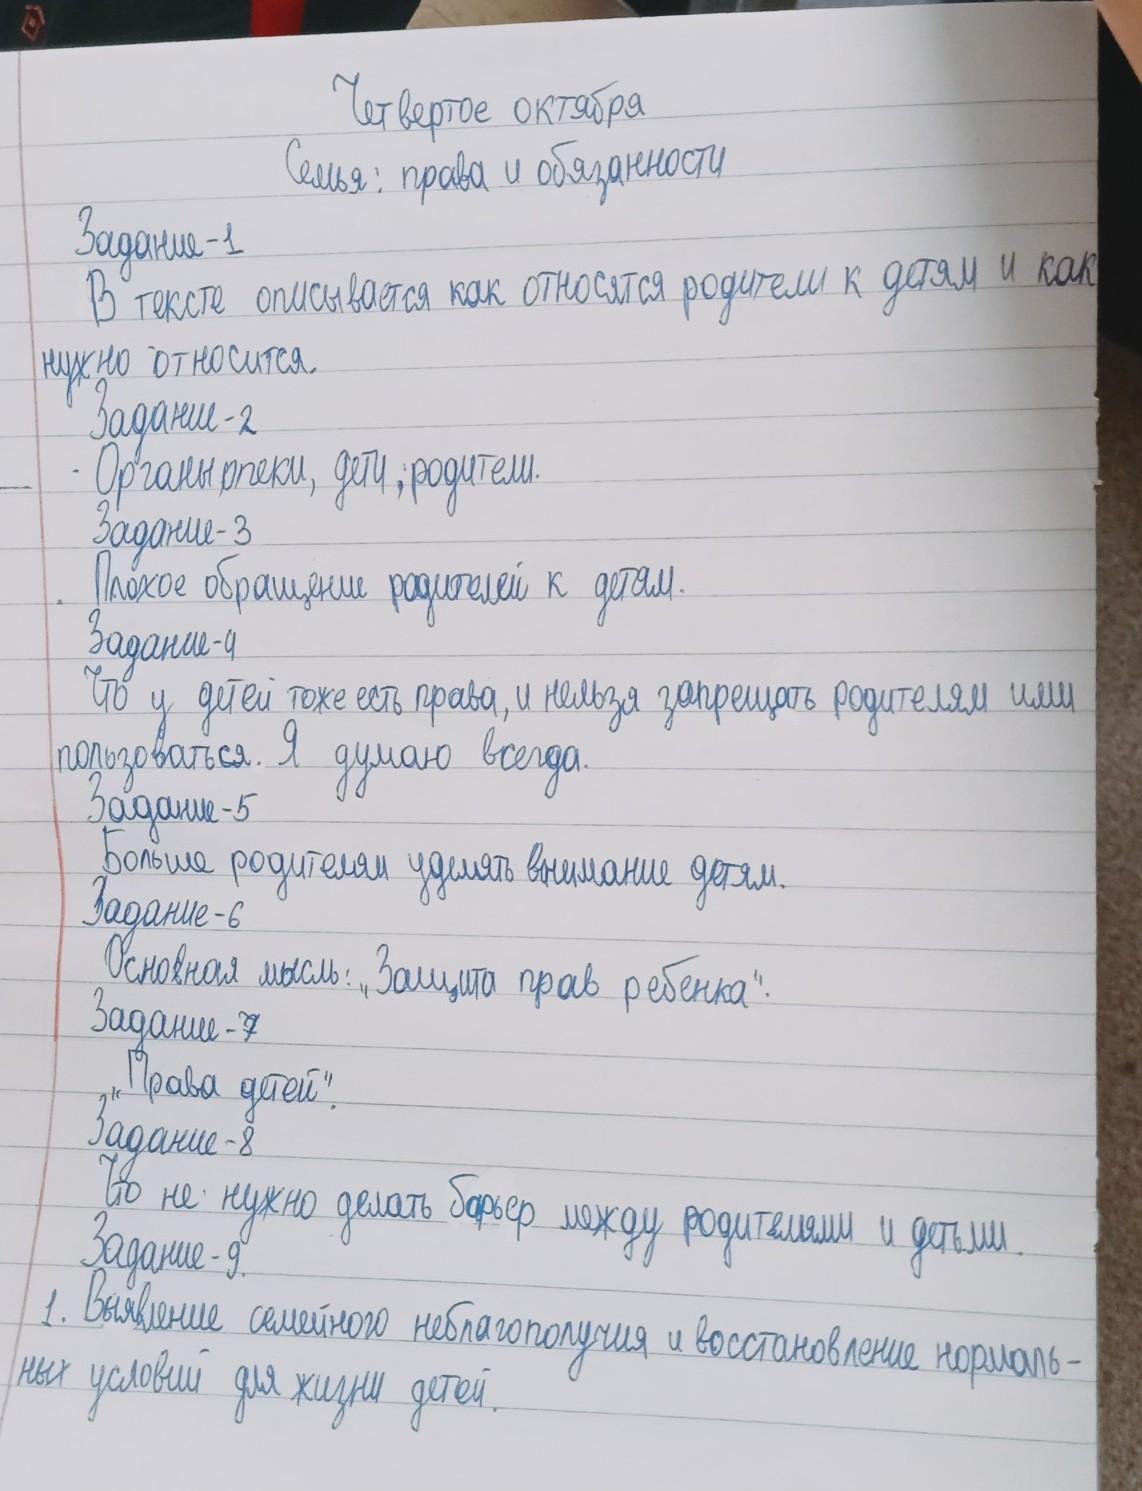 Четвертое октября
Семья: права и обязанности
Задание-1
В тексте описывается как относятся родители к детям и как
нужно относится.
Задание-2
Органы опеки, дети, родители.
Задание-3
Плохое обращение родителей к детям.
Задание-4
Что у детей тоже есть права, и нельзя запрещать родителям ими
пользоваться. Я думаю всегда.
Задание-5
Больше родителям уделять внимание детям.
Задание-6
Основная мысль: „Защита прав ребенка".
Задание-7
„Права детей".
Задание-8
Что не нужно делать барьер между родителями и детьми.
Задание-9.
1. Выявление семейного неблагополучия и восстановление нормаль-
ных условий для жизни детей.